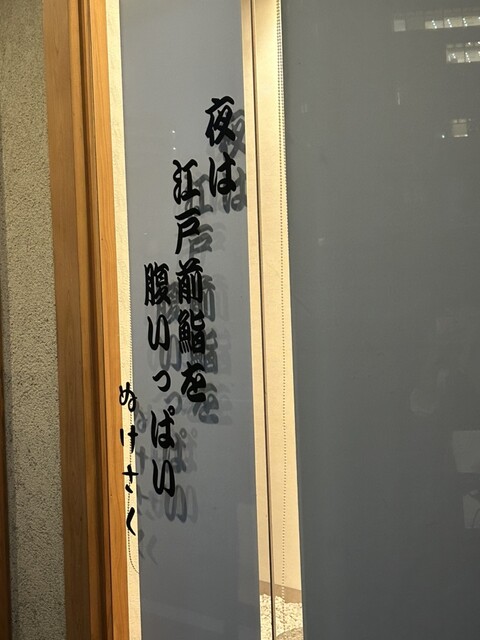 夜は
江戸前鮨を
腹いっぱい
ぬけさく